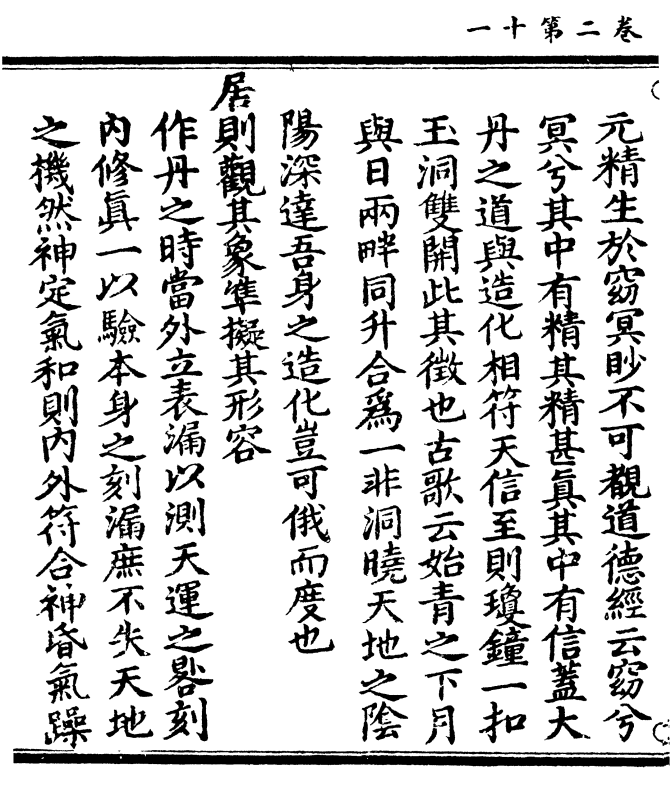 卷二第十一
元精生於窈冥眇不可覩道德經云窈兮
冥兮其中有精其精甚眞其中有信蓋大
丹之道與造化相符天信至則瓊鐘一扣
玉洞雙開此其徵也古歌云始青之下月
與日兩畔同升合爲一非洞曉天地之陰
陽深達吾身之造化豈可俄而度也
居則觀其象準擬其形容
作丹之時當外立表漏以測天運之晷刻
內修眞一以驗本身之刻漏庶不失天地
之機然神定氣和則內外符合神昏氣躁